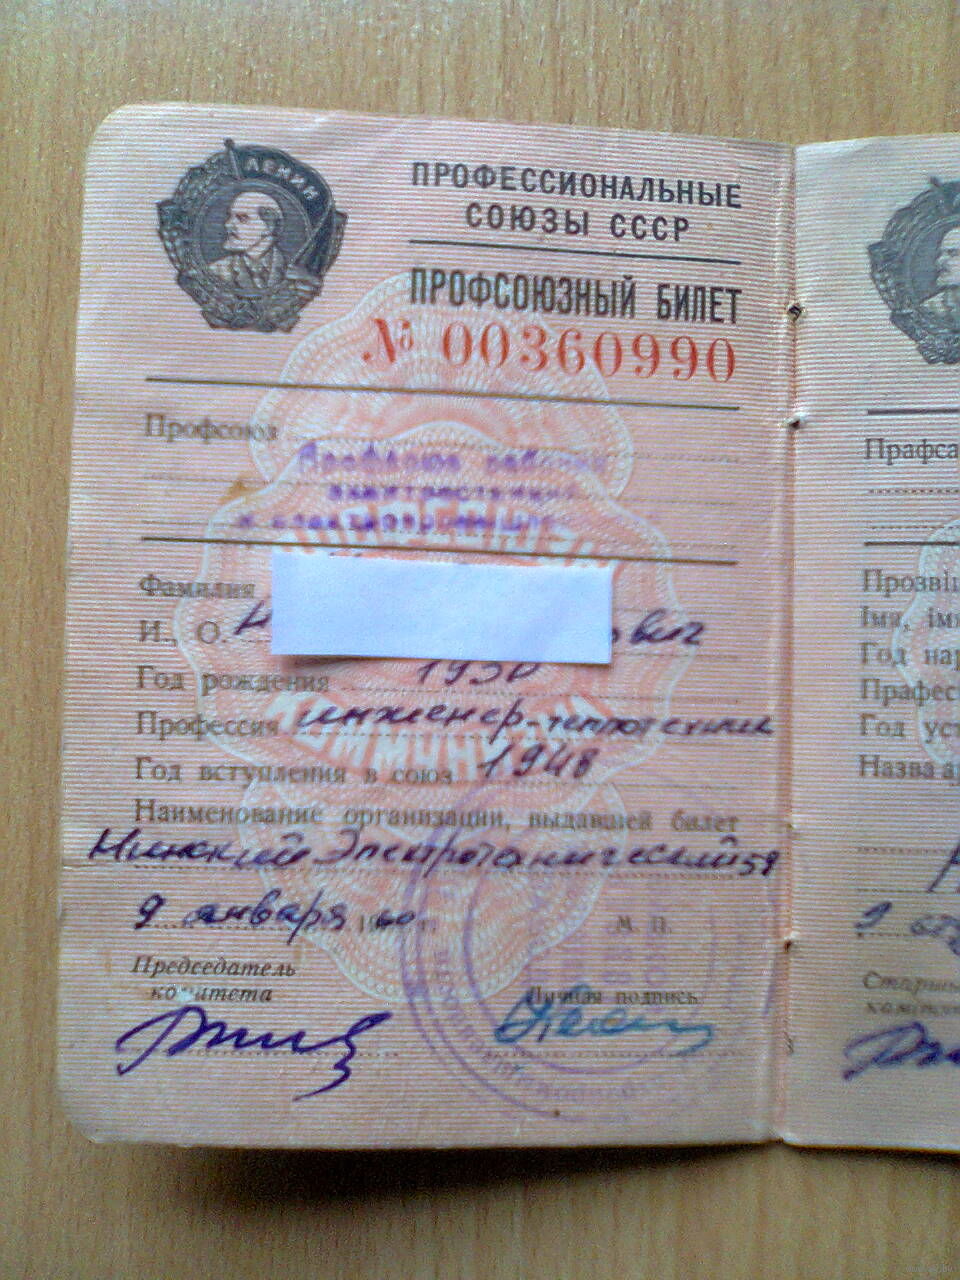 ЛЕНИН
ПРОФЕССИОНАЛЬНЫЕ
СОЮЗЫ СССР
ПРОФСОЮЗНЫЙ БИЛЕТ
№ 00360990
Профсоюз Профсоюз рабочих
электростанций
и электропромышл.
Фамилия
И., О. Н вич
Год рождения 1930
Профессия инженер-теплотехник
Год вступления в союз 1948
Наименование организации, выдавшей билет
Минский Электротехнический
9 января 1960 г.
М. П.
Председатель
комитета
Личная подпись
Прафса
Прозвіш
Імя, імя
Год нар
Прафес
Год уст
Назва ар
9 сту
Старшы
камітэ